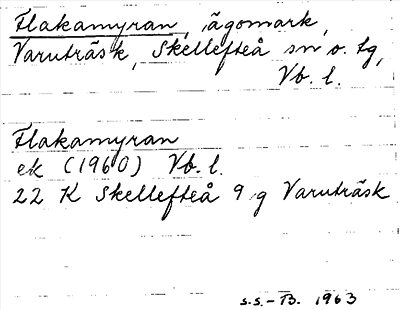 Flakamyran, ägomark,
Varuträsk, Skellefteå sn o. tg,
Vb. l.
Flakamyran
ek (1960) Vb. l.
22 K Skellefteå 9 g Varuträsk
S.S.-B. 1963